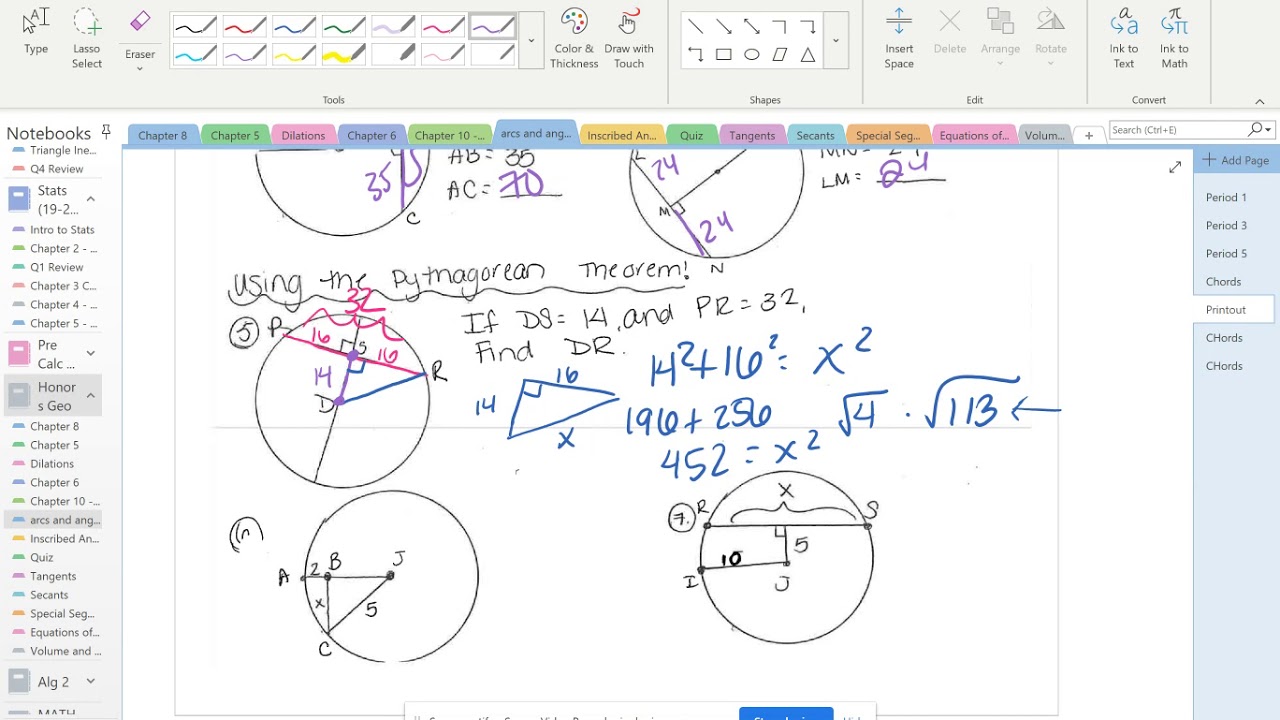 Type
Lasso Select
Eraser
Color & Thickness
Draw with Touch
Insert Space
Delete
Arrange
Rotate
Ink to Text
Ink to Math
Tools
Shapes
Edit
Convert
Notebooks
Chapter 8
Chapter 5
Dilations
Chapter 6
Chapter 10 -...
arcs and ang...
Inscribed An...
Quiz
Tangents
Secants
Special Seg...
Equations of...
Volum...
Search (Ctrl+E)
Triangle Ine...
Q4 Review
Stats (19-2...
Intro to Stats
Chapter 2 - ...
Q1 Review
Chapter 3 C...
Chapter 4 - ...
Chapter 5 - ...
Pre Calc ...
Honors Geo
Chapter 8
Chapter 5
Dilations
Chapter 6
Chapter 10 -...
arcs and ang...
Inscribed An...
Quiz
Tangents
Secants
Special Seg...
Equations of...
Volume and ...
Alg 2
MATH
Add Page
Period 1
Period 3
Period 5
Chords
Printout
Chords
Chords
35
C
AB = 35
AC = 70
L
24
M
24
N
LM = 24
Using the Pythagorean Theorem!
5
32
P
16
S
16
R
14
D
If DS = 14, and PR = 32,
Find DR.
16
14
x
14² + 16² = x²
196 + 256
√4 · √113 ←
452 = x²
A
2
B
J
x
5
C
7.
R
x
S
5
10
I
J